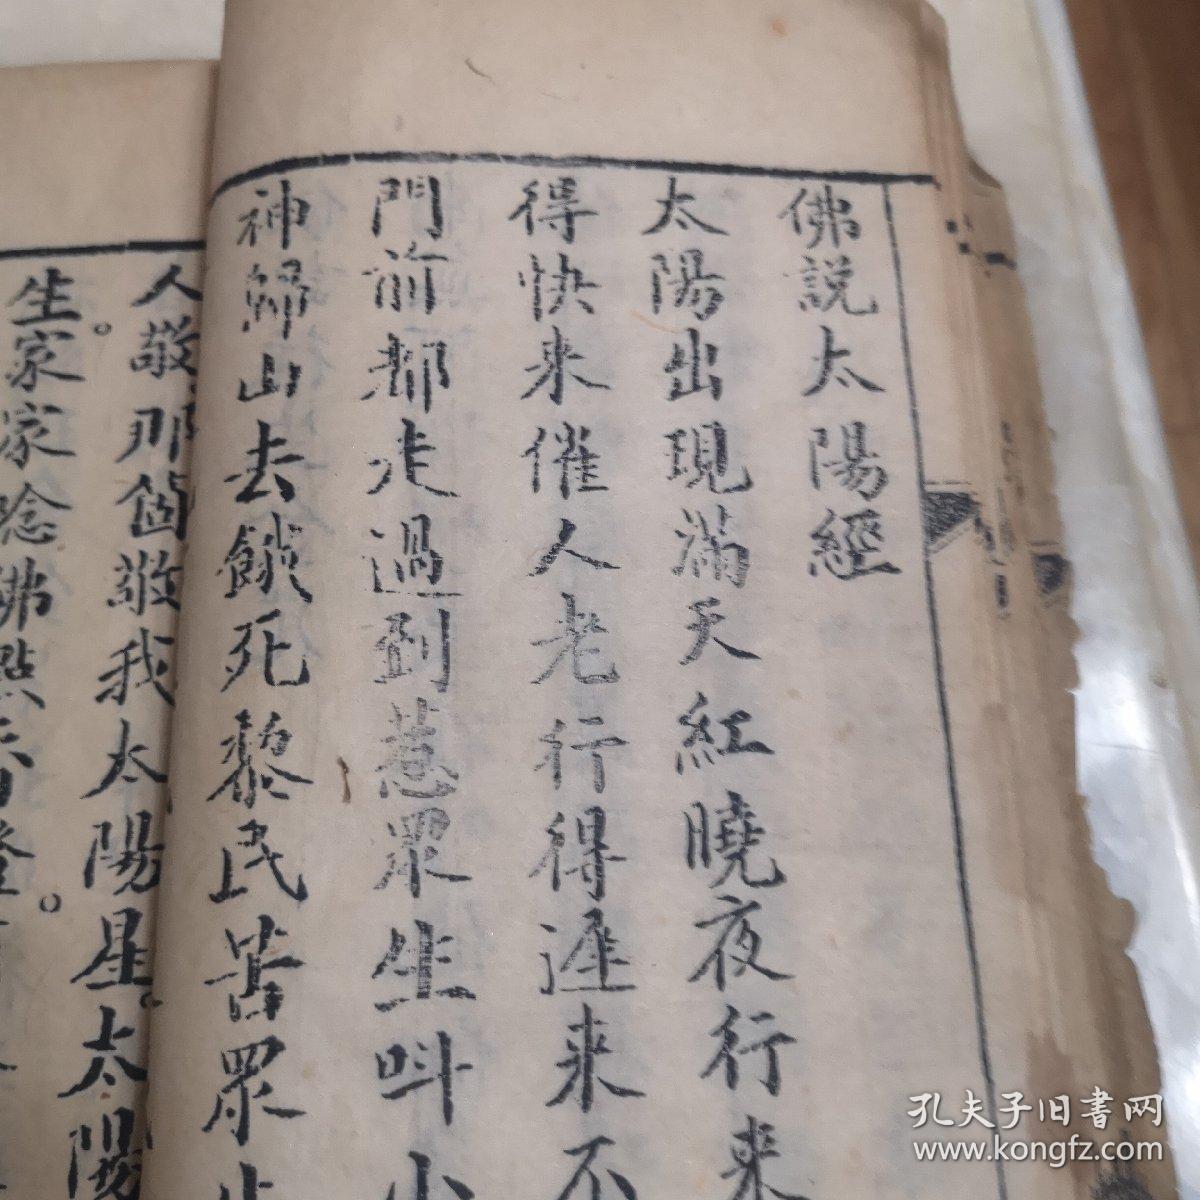 佛說太陽經
太陽出現滿天紅曉夜行来
得快来催人老行得遲来不
門前都走過到惹眾生叫小
神歸山去餓死黎民苦眾生
人敬那箇敬我太陽星。太陽
生。家家唸佛點香燈。
孔夫子旧書网
www.kongfz.com